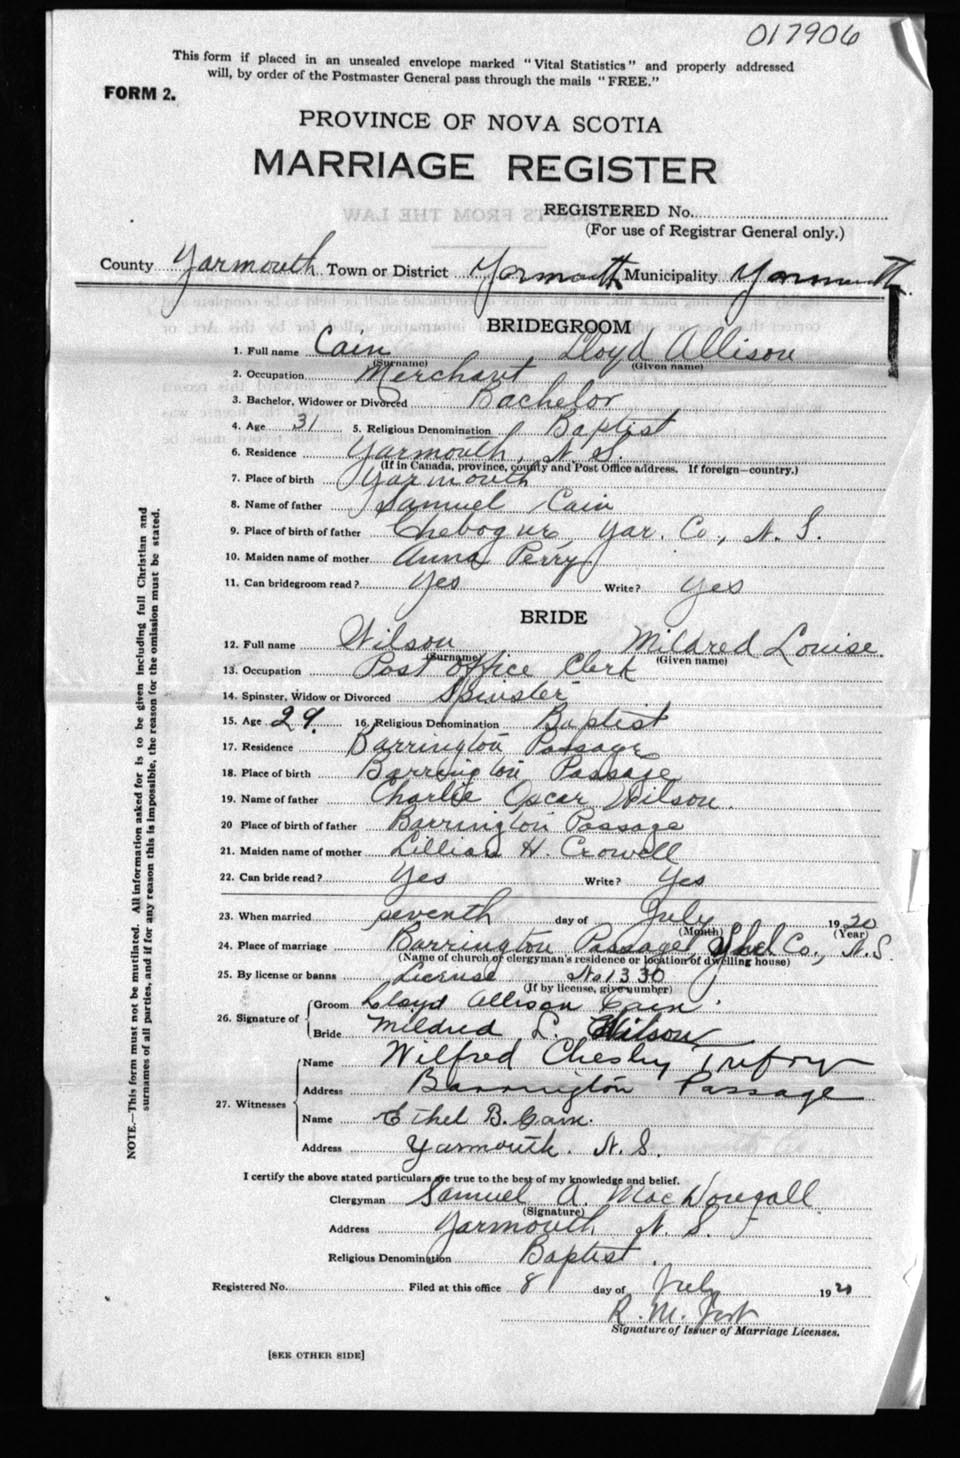 017906
This form if placed in an unsealed envelope marked "Vital Statistics" and properly addressed
will, by order of the Postmaster General pass through the mails "FREE."
FORM 2.
PROVINCE OF NOVA SCOTIA
MARRIAGE REGISTER
REGISTERED No.
(For use of Registrar General only.)
County Yarmouth Town or District Yarmouth Municipality Yarmouth
BRIDEGROOM
1. Full name Cain Lloyd Allison
(Surname) (Given name)
2. Occupation Merchant
3. Bachelor, Widower or Divorced Bachelor
4. Age 31 5. Religious Denomination Baptist
6. Residence Yarmouth, N. S.
(If in Canada, province, county and Post Office address. If foreign—country.)
7. Place of birth Yarmouth
8. Name of father Samuel Cain
9. Place of birth of father Chebogue, Yar. Co., N. S.
10. Maiden name of mother Anna Perry
11. Can bridegroom read? Yes Write? Yes
BRIDE
12. Full name Wilson Mildred Louise
(Surname) (Given name)
13. Occupation Post Office Clerk
14. Spinster, Widow or Divorced Spinster
15. Age 29. 16. Religious Denomination Baptist
17. Residence Barrington Passage
18. Place of birth Barrington Passage
19. Name of father Charlie Oscar Wilson.
20 Place of birth of father Barrington Passage
21. Maiden name of mother Lillian H. Crowell
22. Can bride read? Yes Write? Yes
23. When married seventh day of July 1920
(Month) (Year)
24. Place of marriage Barrington Passage, Shel Co., N. S.
(Name of church or clergyman's residence or location of dwelling house)
25. By license or banns License No 1330
(If by license, give number)
26. Signature of Groom Lloyd Allison Cain
Bride Mildred L. Wilson
27. Witnesses
Name Wilfred Chesley Trefry
Address Barrington Passage
Name Ethel B. Cain.
Address Yarmouth. N. S.
I certify the above stated particulars are true to the best of my knowledge and belief.
Clergyman Samuel A. MacDougall
(Signature)
Address Yarmouth N. S.
Religious Denomination Baptist.
Registered No. Filed at this office 8 day of July 1920
R. M.
Signature of Issuer of Marriage Licenses.
[SEE OTHER SIDE]
NOTE.—This form must not be mutilated. All information asked for is to be given including full Christian and
surnames of all parties, and if for any reason this is impossible, the reason for the omission must be stated.